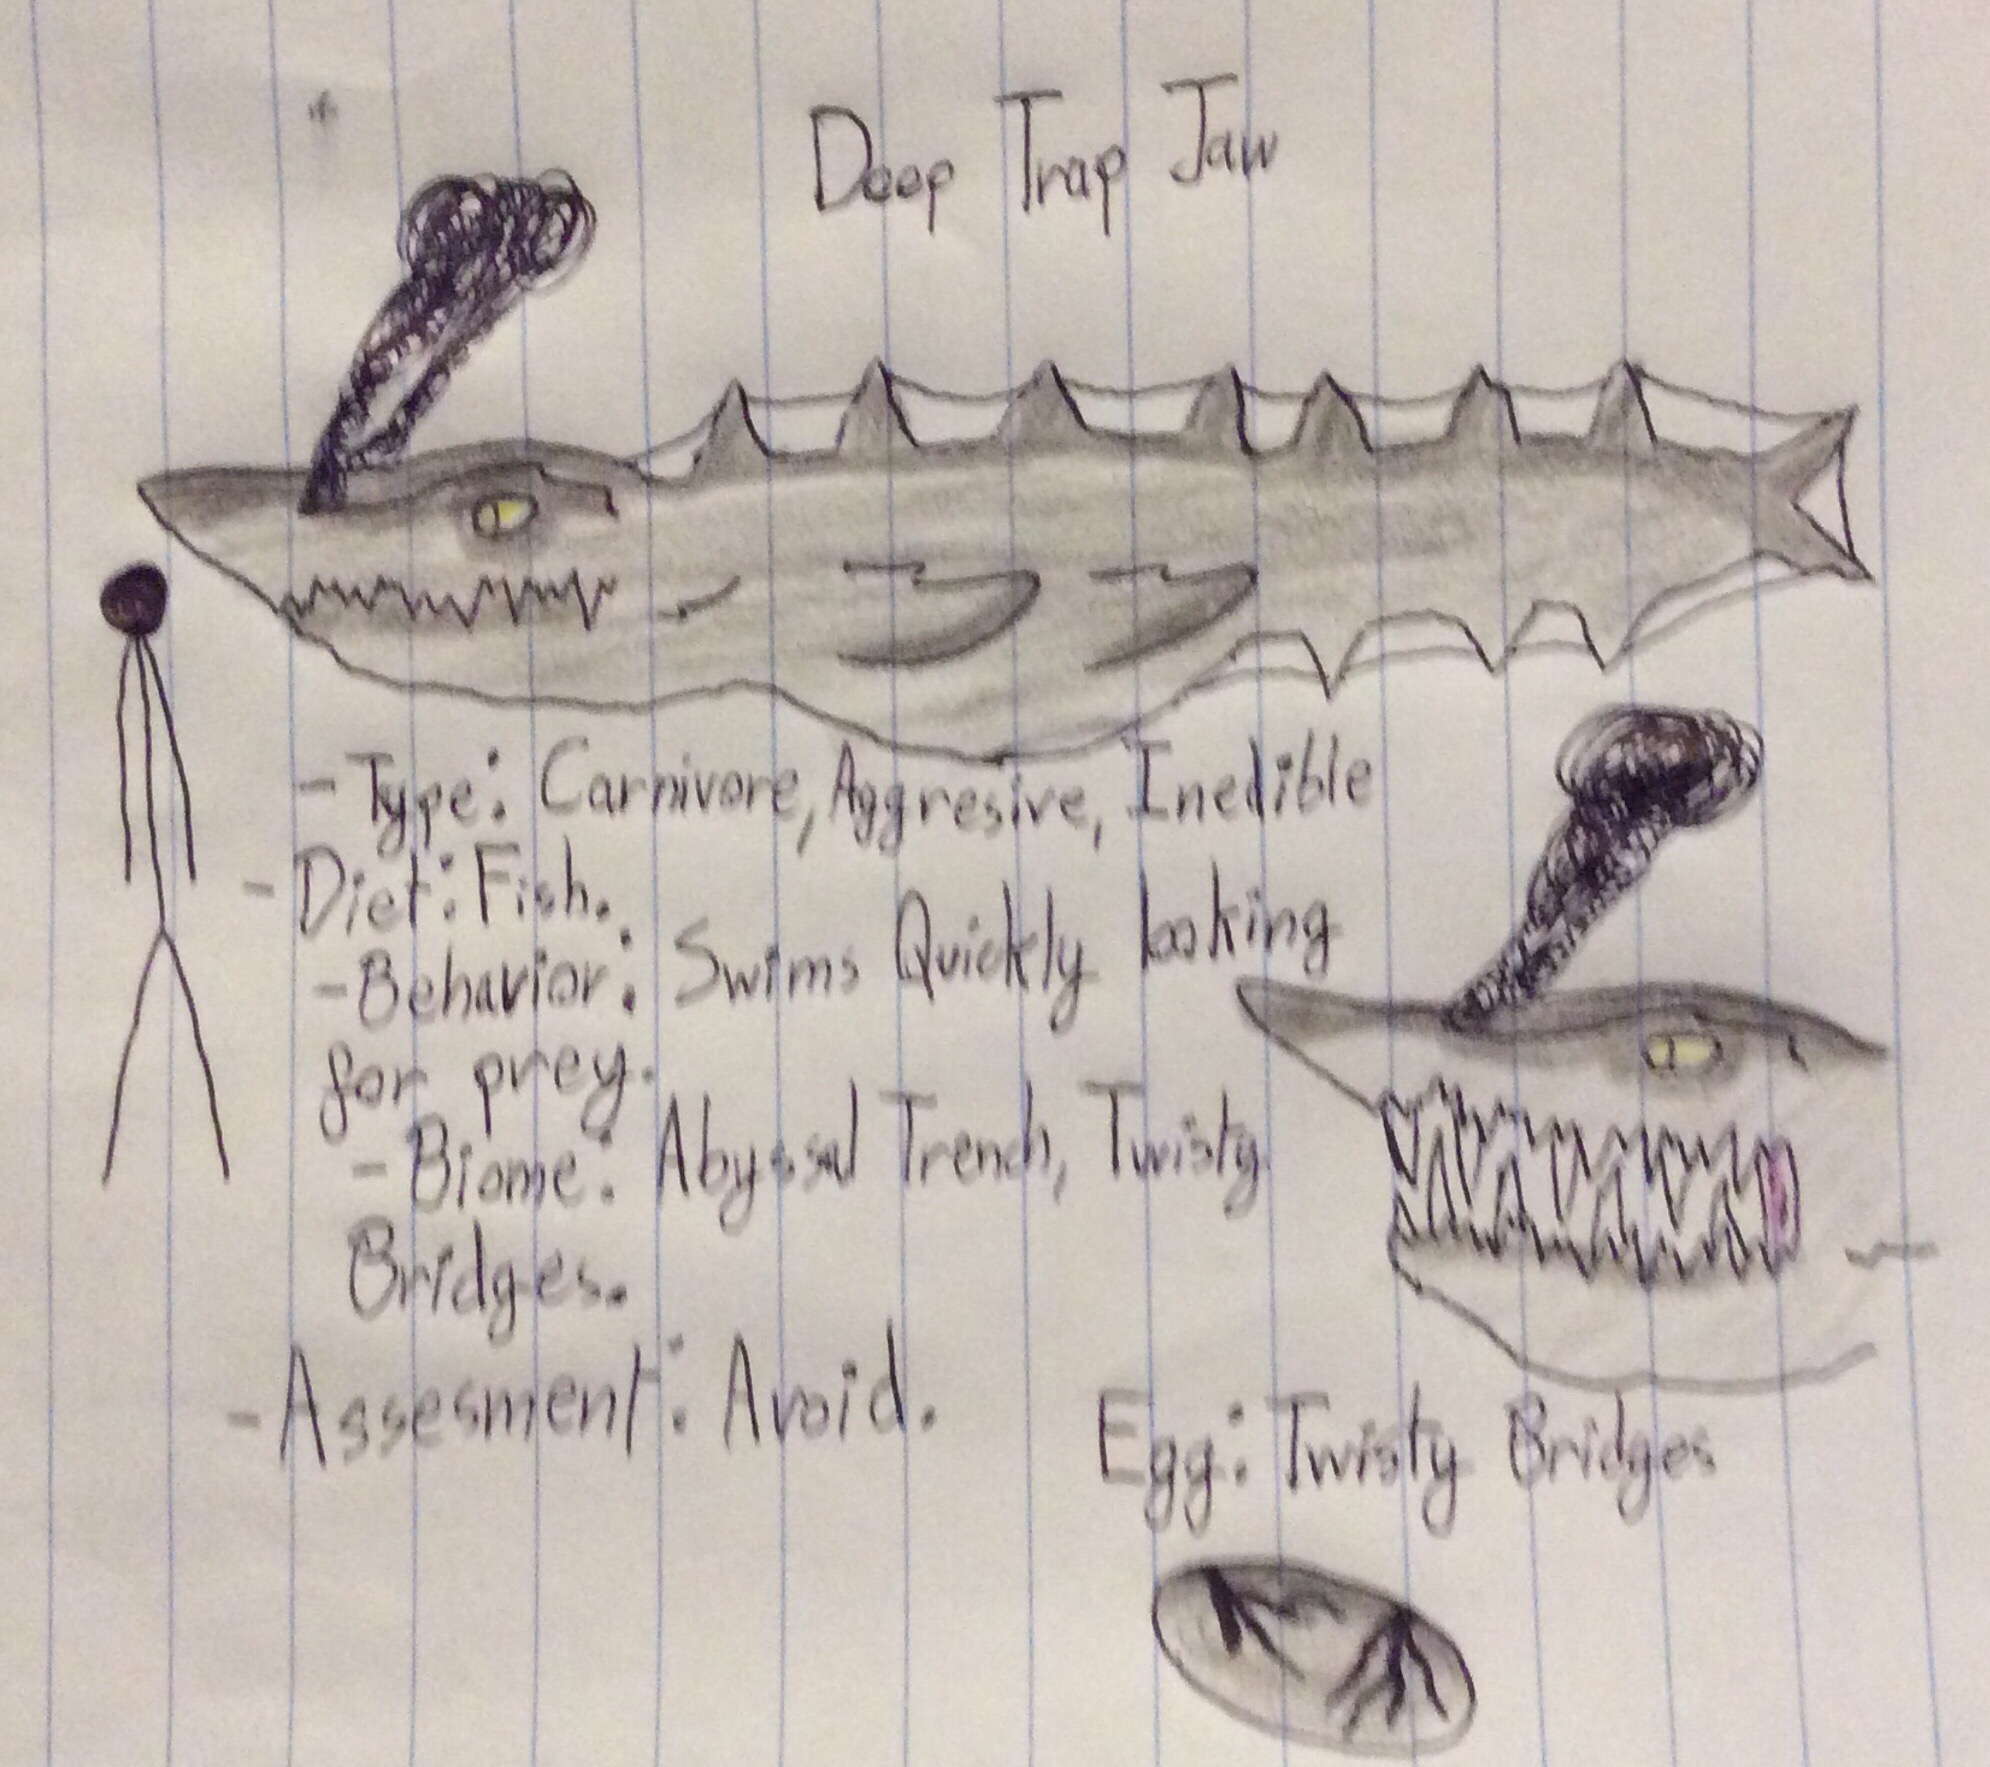 Deep Trap Jaw
- Type: Carnivore, Aggresive, Inedible
- Diet: Fish.
- Behavior: Swims Quickly looking
for prey.
- Biome: Abyssal Trench, Twisty
Bridges.
- Assesment: Avoid.
Egg: Twisty Bridges